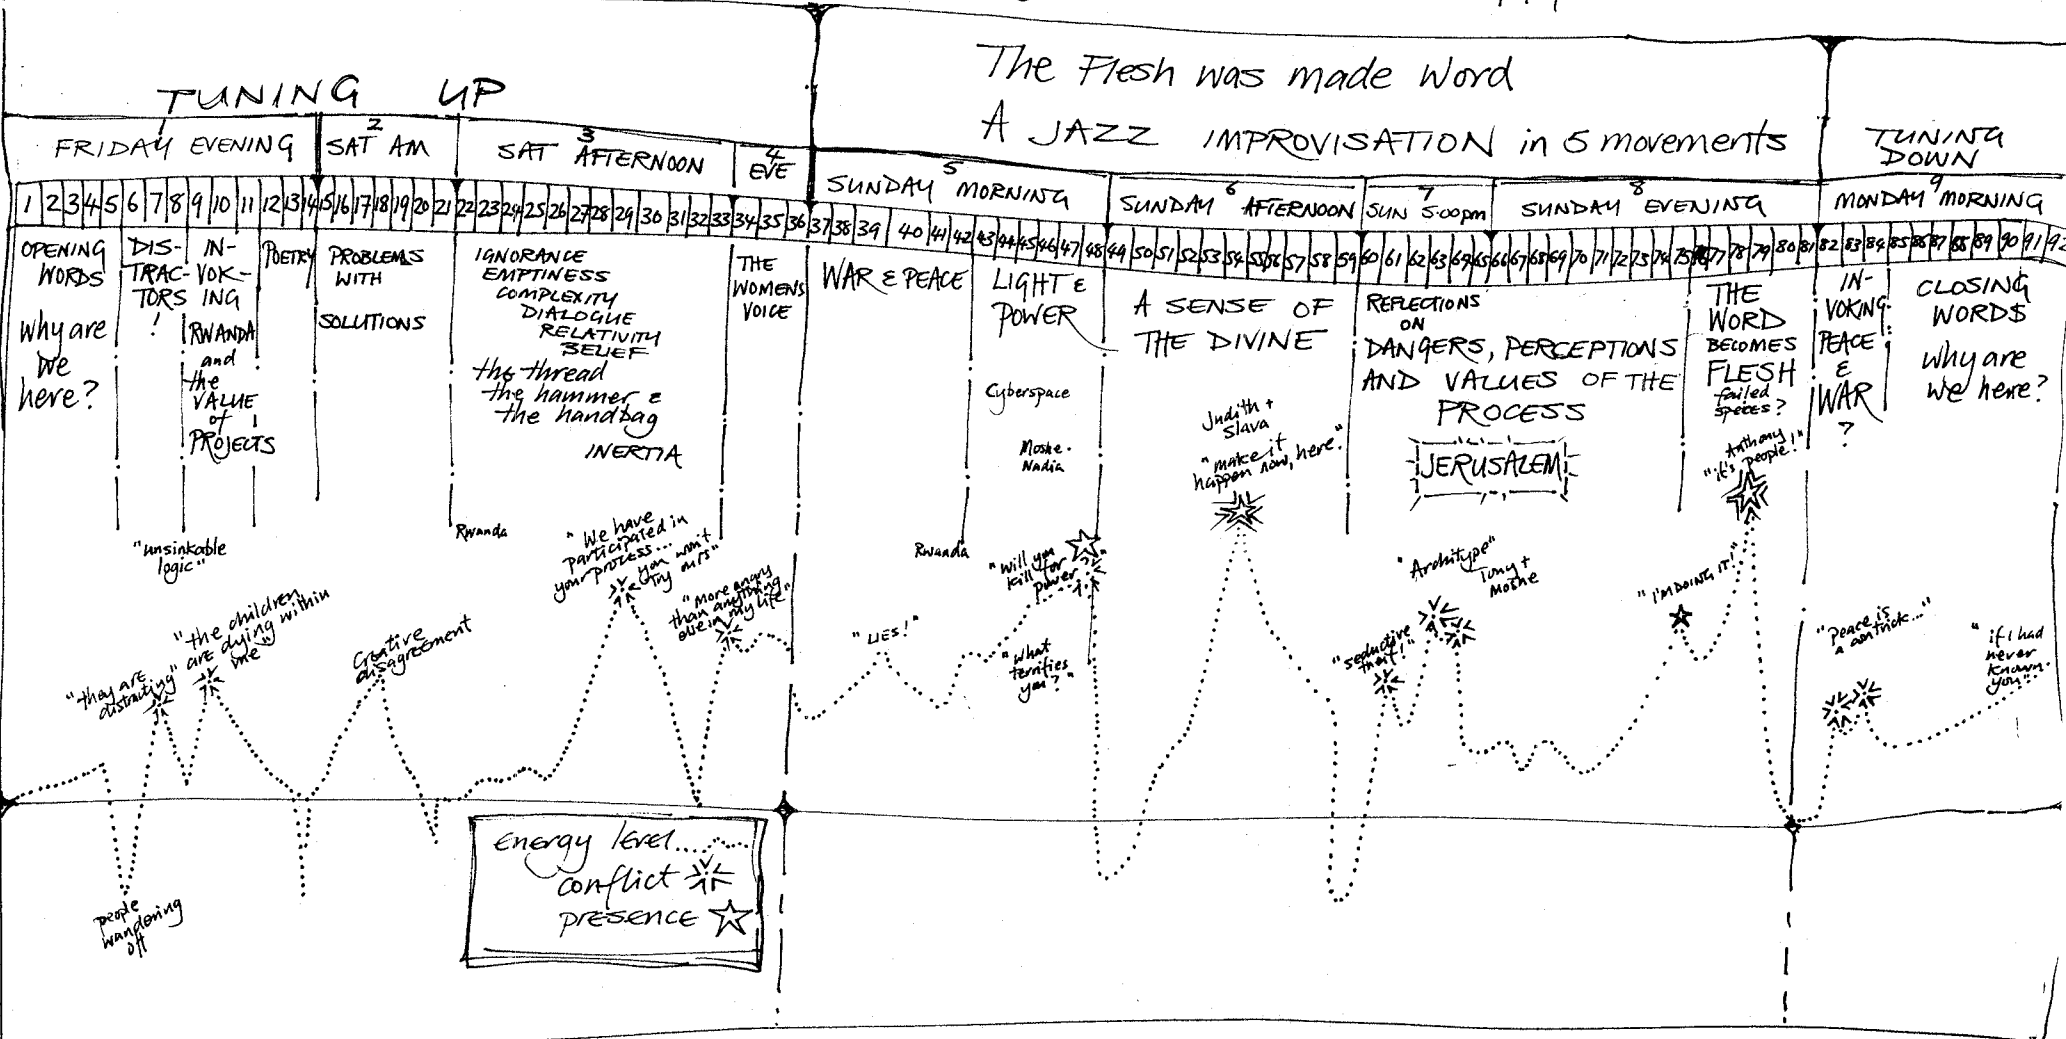 The Flesh was made Word
A JAZZ IMPROVISATION in 5 movements
TUNING UP
TUNING
DOWN
1
FRIDAY EVENING
2
SAT AM
3
SAT AFTERNOON
4
EVE
5
SUNDAY MORNING
6
SUNDAY AFTERNOON
7
SUN 5.00pm
8
SUNDAY EVENING
9
MONDAY MORNING
1 2 3 4 5 6 7 8 9 10 11 12 13 14 15 16 17 18 19 20 21 22 23 24 25 26 27 28 29 30 31 32 33 34 35 36 37 38 39 40 41 42 43 44 45 46 47 48 49 50 51 52 53 54 55 56 57 58 59 60 61 62 63 64 65 66 67 68 69 70 71 72 73 74 75 76 77 78 79 80 81 82 83 84 85 86 87 88 89 90 91 92
OPENING
WORDS
why are
we
here?
DIS-
TRAC-
TORS
!
IN-
VOK-
ING
RWANDA
and
the
VALUE
of
PROJECTS
POETRY
PROBLEMS
WITH
SOLUTIONS
IGNORANCE
EMPTINESS
COMPLEXITY
DIALOGUE
RELATIVITY
BELIEF
the thread
the hammer &
the handbag
INERTIA
THE
WOMENS
VOICE
WAR & PEACE
LIGHT &
POWER
Cyberspace
Moshe.
Nadia
A SENSE OF
THE DIVINE
Judith +
Slava
"make it
happen now, here."
REFLECTIONS
ON
DANGERS, PERCEPTIONS
AND VALUES OF THE
PROCESS
JERUSALEM
THE
WORD
BECOMES
FLESH
failed
species?
Anthony
"it's people!"
IN-
VOKING
PEACE
&
WAR
?
CLOSING
WORDS
why are
we here?
"unsinkable
logic"
"they are
distracting"
"the children
are dying within
me"
people
wandering
off
Creative
disagreement
Rwanda
"We have
participated in
your process...
you won't
try ours"
"More angry
than anything
else in my life"
"LIES!"
Rwanda
"Will you
kill for
power"
"What
terrifies
you?"
"seductive
twit!"
"Architype"
Tony +
Moshe
"I'M DOING IT!"
"Peace is
a con trick..."
"if I had
never
known
you"
Energy level
conflict
presence